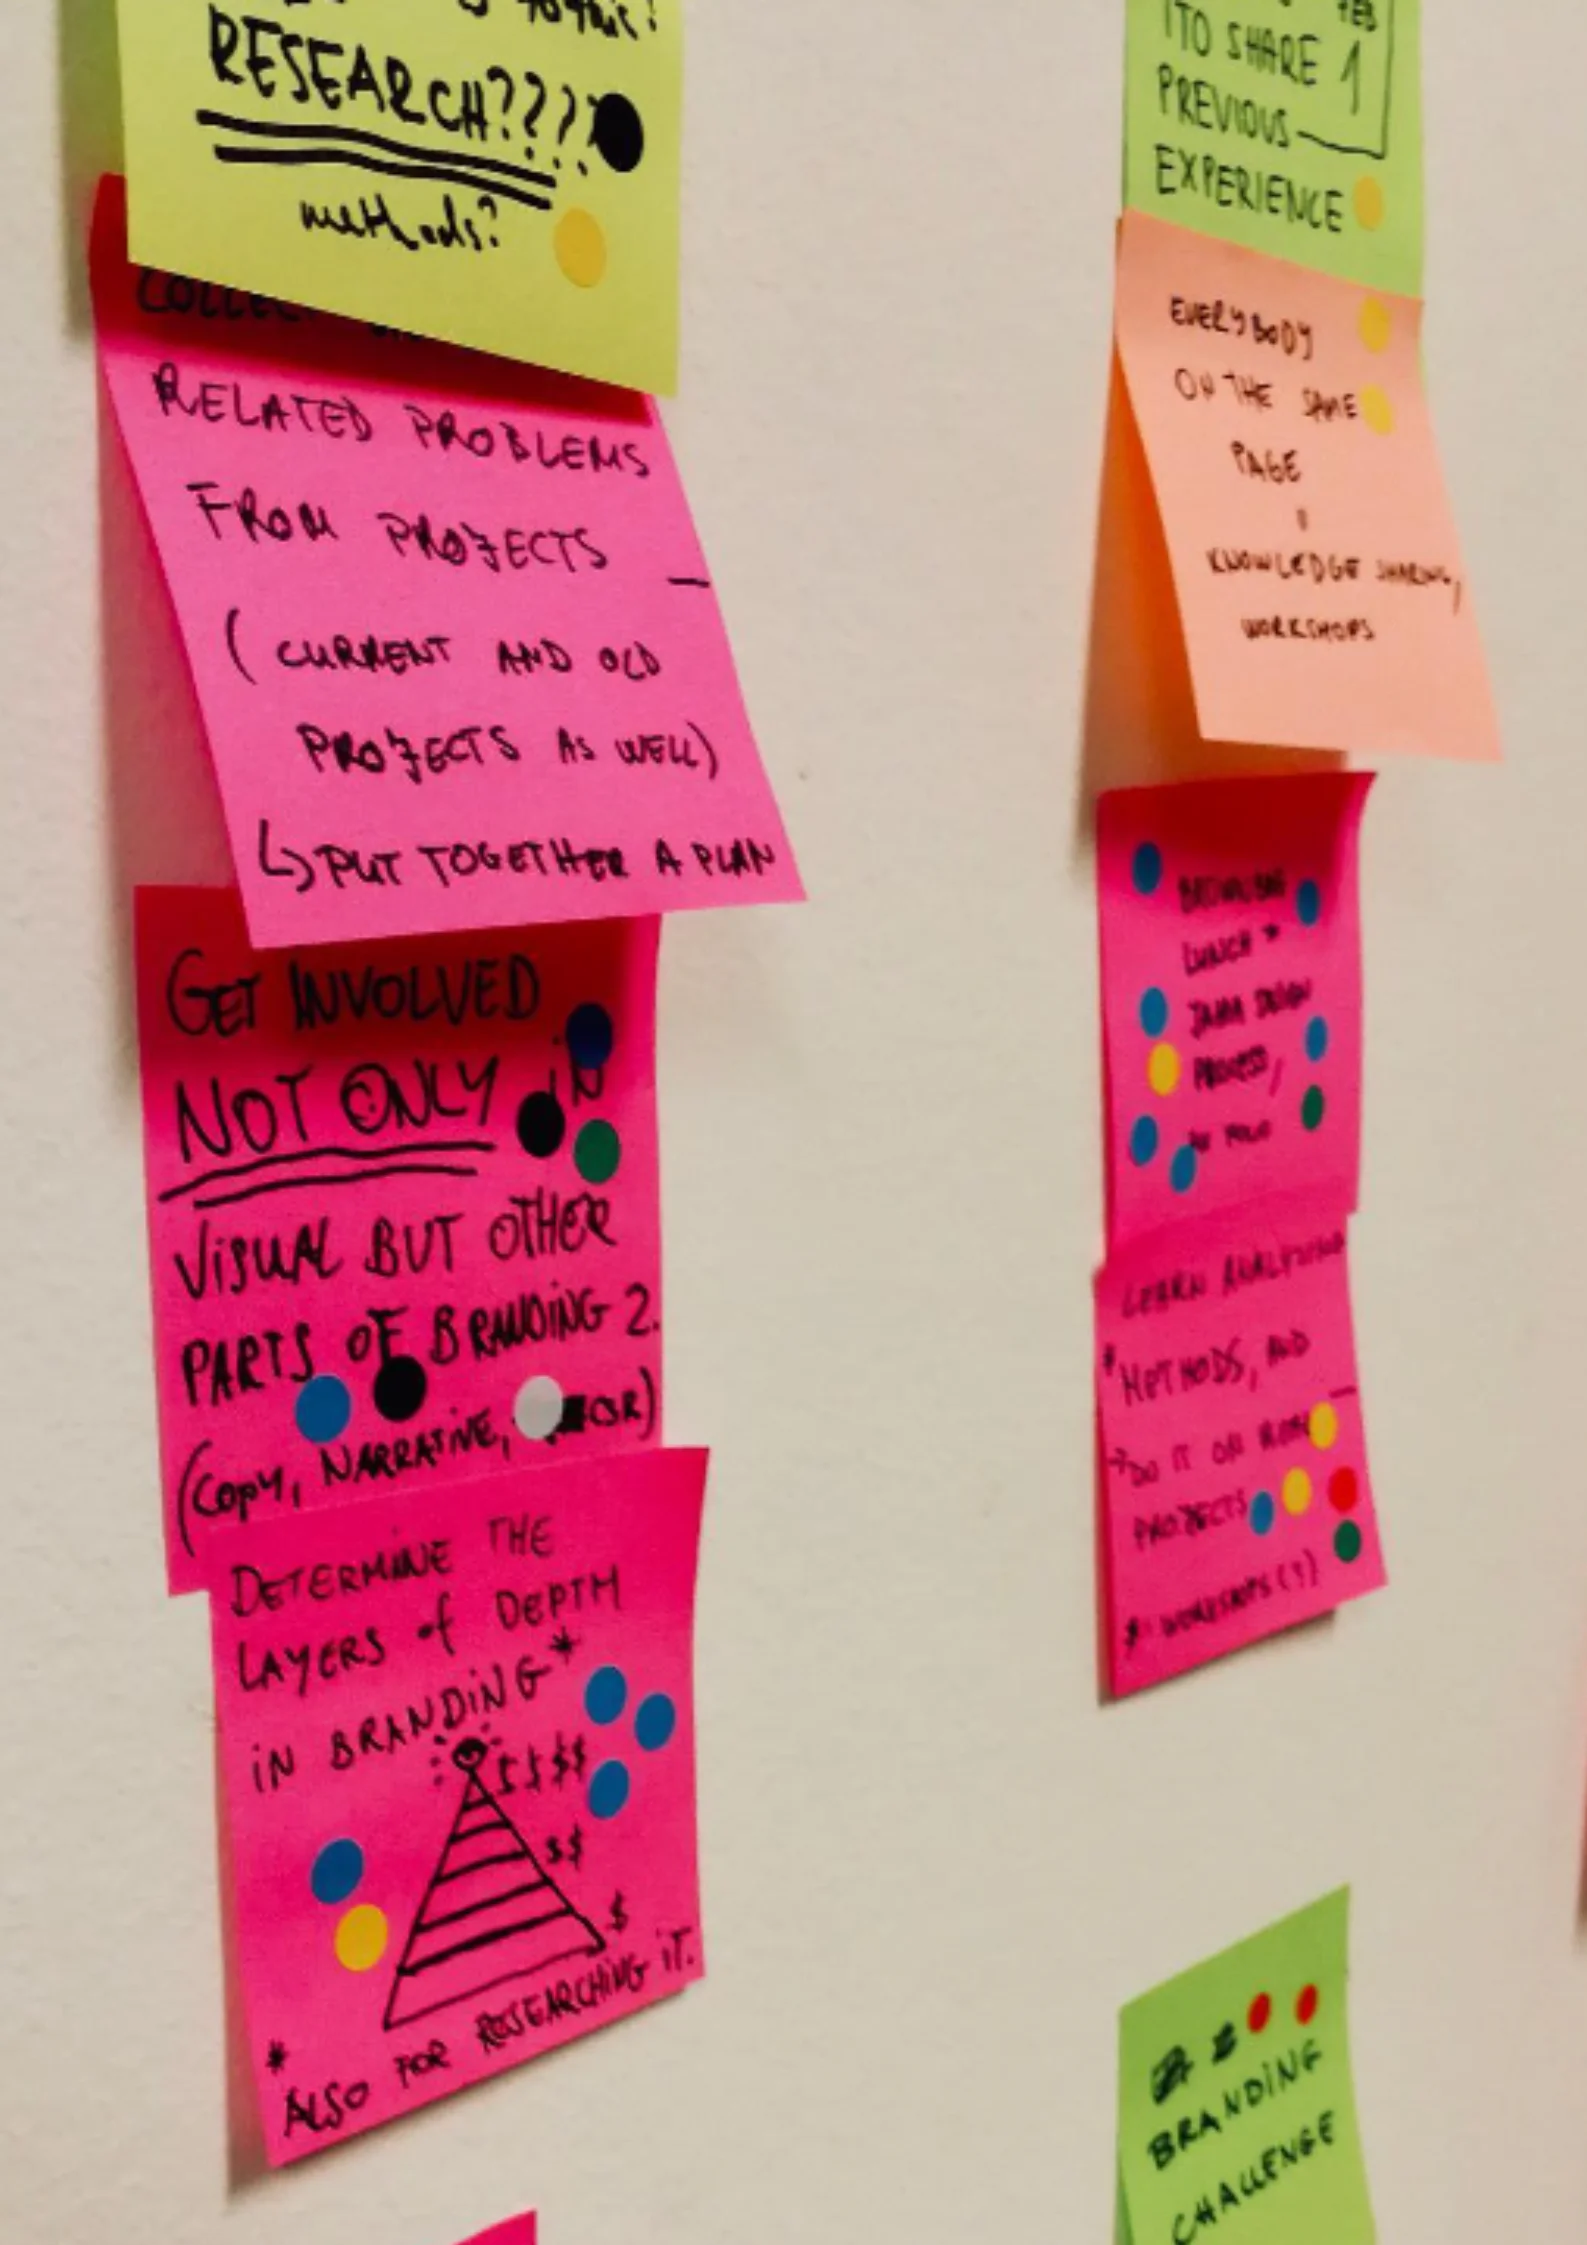 RESEARCH????
methods?
RELATED PROBLEMS
FROM PROJECTS
(CURRENT AND OLD
PROJECTS AS WELL)
↳ PUT TOGETHER A PLAN
GET INVOLVED
NOT ONLY IN
VISUAL BUT OTHER
PARTS OF BRANDING 2.
(COPY, NARRATIVE,
DETERMINE THE
LAYERS of DEPTH
IN BRANDING*
$$$$
$$
$
*
ALSO FOR RESEARCHING IT.
TO SHARE 1
PREVIOUS
EXPERIENCE
EVERYBODY
ON THE SAME
PAGE
KNOWLEDGE SHARING,
WORKSHOPS
LUNCH *
PROCESS,
LEARN ANALYSING
* METHODS, AND
→ DO IT ON
PROJECTS
*: WORKSHOPS (?)
BRANDING
CHALLENGE